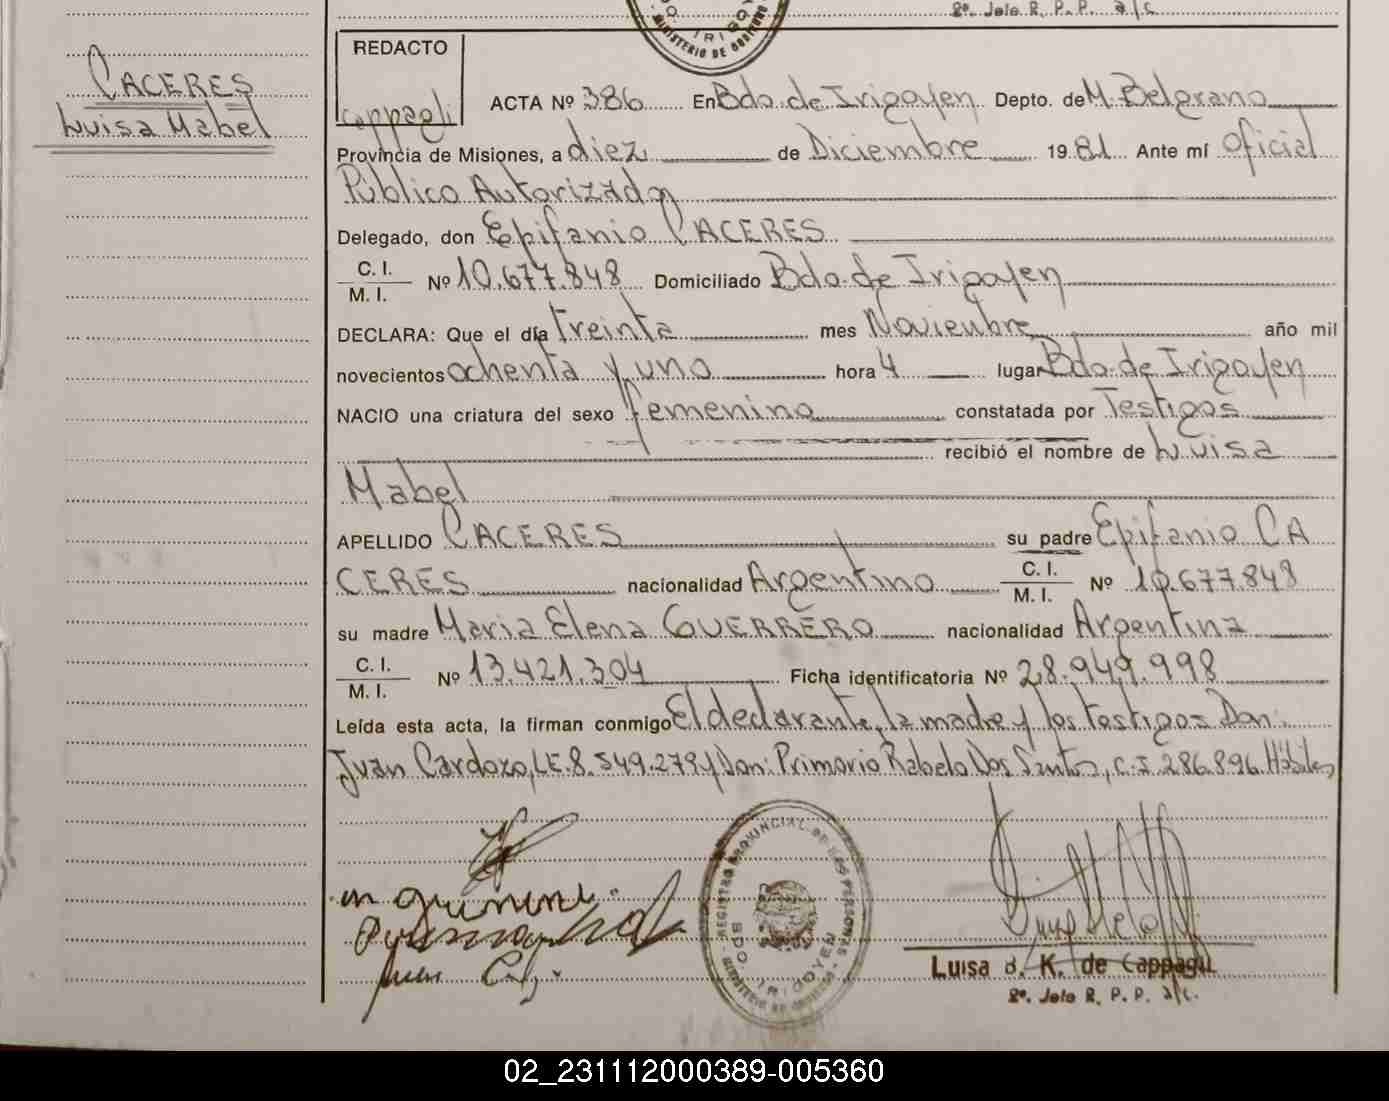 2º. Jefe R. P. P. a/c
IRIGOYEN
MINISTERIO DE GOBIERNO
CACERES
Luisa Mabel
REDACTO
Cappagli
ACTA Nº 386 En Bdo. de Irigoyen Depto. de M. Belgrano
Provincia de Misiones, a diez de Diciembre 1981 Ante mí Oficial
Público Autorizado
Delegado, don Epifanio CACERES
C. I.
M. I. Nº 10.677.848 Domiciliado Bdo. de Irigoyen
DECLARA: Que el día treinta mes Noviembre año mil
novecientos ochenta y uno hora 4 lugar Bdo de Irigoyen
NACIO una criatura del sexo femenino constatada por Testigos
recibió el nombre de Luisa
Mabel
APELLIDO CACERES su padre Epifanio CA
CERES nacionalidad Argentino C. I.
M. I. Nº 10.677.848
su madre Maria Elena GUERRERO nacionalidad Argentina
C. I.
M. I. Nº 13.421.304 Ficha identificatoria Nº 28.949.998
Leída esta acta, la firman conmigo El declarante, la madre y los testigos Don:
Juan Cardozo, L.E. 8.549.279 y Don: Primorio Rabelo Dos Santos, C.I. 286.896. Hábiles
REGISTRO PROVINCIAL DE LAS PERSONAS
BDO. IRIGOYEN
MINISTERIO DE GOBIERNO
Luisa B. K. de Cappagli
2º. Jefe R. P. P. a/c.
02_231112000389-005360